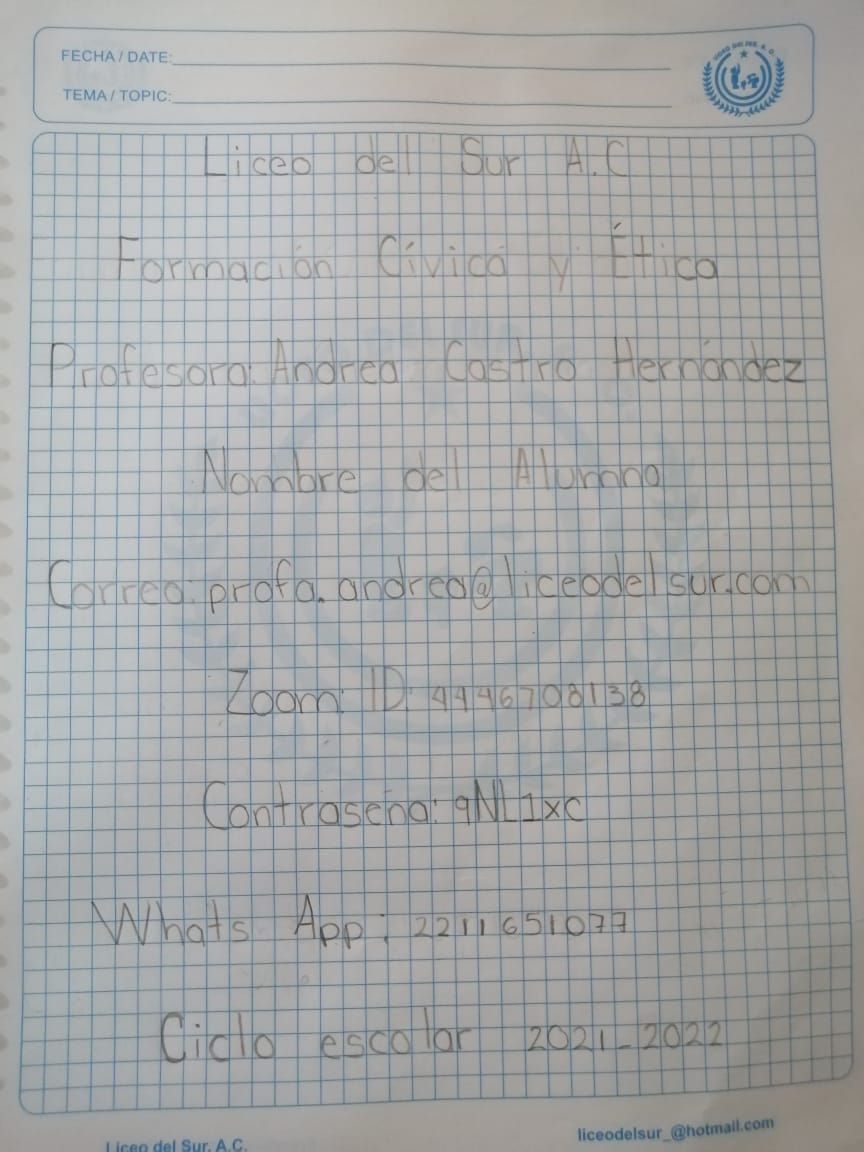 FECHA / DATE:
TEMA / TOPIC:
Liceo del Sur A.C
Formación Cívica y Ética
Profesora: Andrea Castro Hernández
Nombre del Alumno
Correo: profa.andrea@liceodelsur.com
Zoom: ID: 4446708138
Contraseña: qNL1xc
Whats App: 2211651077
Ciclo escolar 2021-2022
Liceo del Sur, A.C.
liceodelsur_@hotmail.com